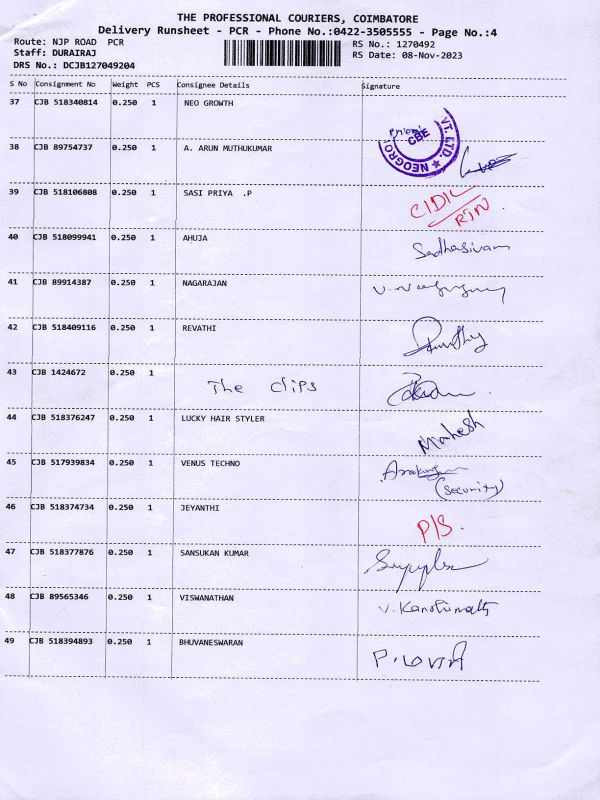 THE PROFESSIONAL COURIERS, COIMBATORE
Delivery Runsheet - PCR - Phone No.:0422-3505555 - Page No.:4
Route: NJP ROAD PCR RS No.: 1270492
Staff: DURAIRAJ RS Date: 08-Nov-2023
DRS No.: DCJB127049204
S No Consignment No Weight PCS Consignee Details Signature
37 CJB 518340814 0.250 1 NEO GROWTH
CBE
38 CJB 89754737 0.250 1 A. ARUN MUTHUKUMAR
39 CJB 518106808 0.250 1 SASI PRIYA .P
RTN
40 CJB 518099941 0.250 1 AHUJA Sadhasivam
41 CJB 89914387 0.250 1 NAGARAJAN
42 CJB 518409116 0.250 1 REVATHI
43 CJB 1424672 0.250 1 The clips
44 CJB 518376247 0.250 1 LUCKY HAIR STYLER Mahesh
45 CJB 517939834 0.250 1 VENUS TECHNO
(Security)
46 CJB 518374734 0.250 1 JEYANTHI P/S.
47 CJB 518377876 0.250 1 SANSUKAN KUMAR
48 CJB 89565346 0.250 1 VISWANATHAN
49 CJB 518394893 0.250 1 BHUVANESWARAN